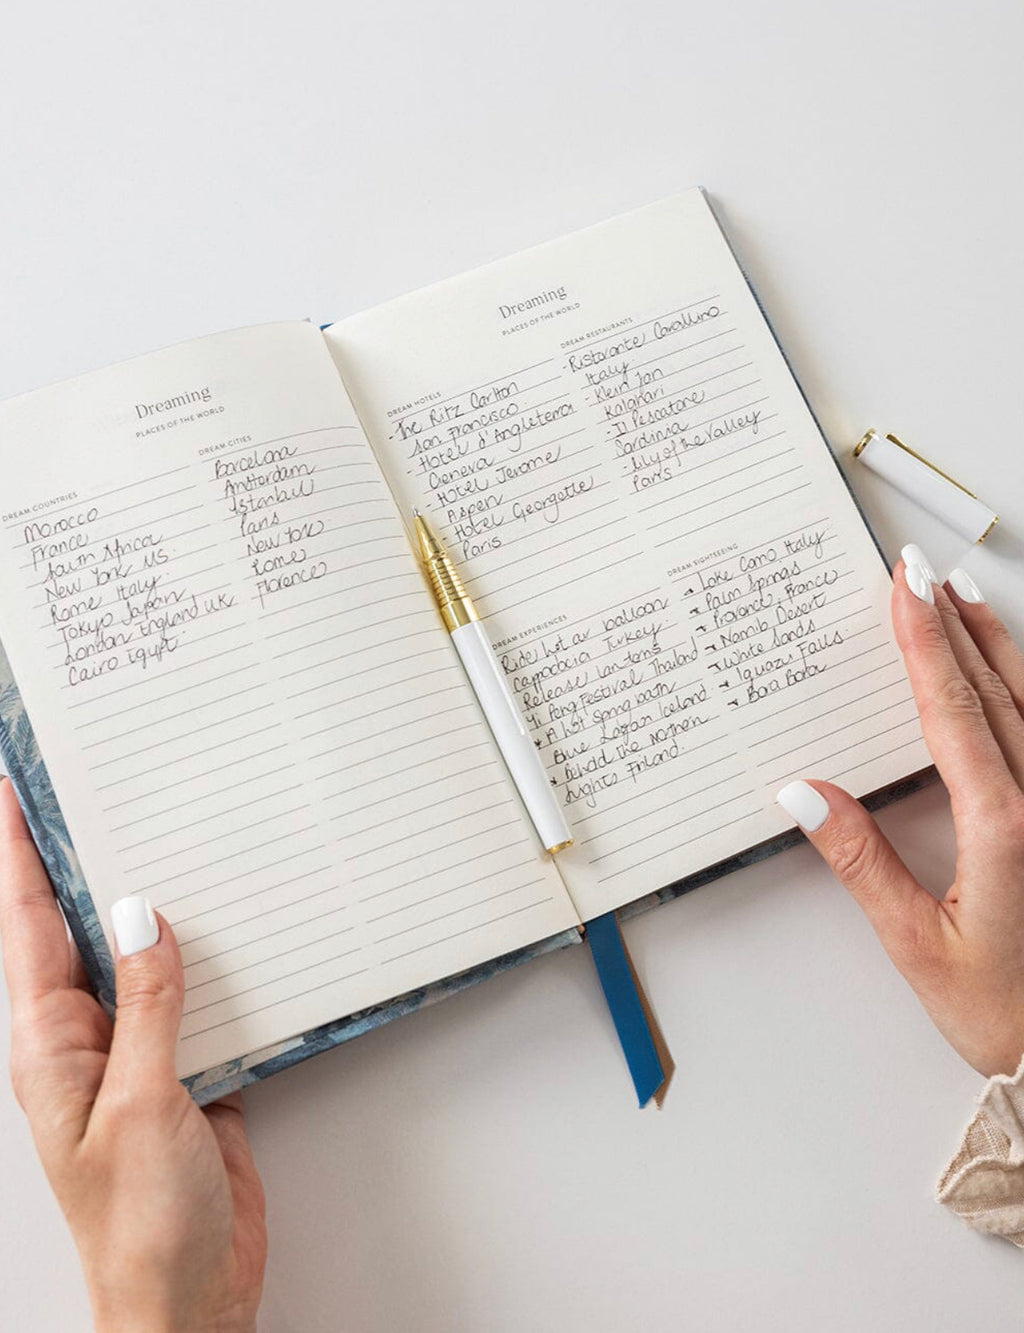 Dreaming
PLACES OF THE WORLD
DREAM COUNTRIES
Morocco
France
South Africa
New York US.
Rome Italy
Tokyo Japan
London England UK
Cairo Egypt.
DREAM CITIES
Barcelona
Amsterdam
Istanbul
Paris
New York
Rome
Florence
Dreaming
PLACES OF THE WORLD
DREAM HOTELS
- The Ritz Carlton
San Francisco.
- Hotel d'Angleterra
Geneva
- Hotel Jerome
Aspen
- Hotel Georgette
Paris
DREAM RESTAURANTS
- Ristorante Cavallino
Italy
- Klein Jan
Kalahari
- Il Pescatore
Sardinia
- Lily of the Valley
Paris
DREAM EXPERIENCES
Ride hot air balloon
Cappadocia Turkey.
Release lanterns
Yi Peng Festival Thailand
* A hot spring bath
Blue Lagoon Iceland
* Behold the Northern
Lights Finland.
DREAM SIGHTSEEING
* Lake Como Italy
* Palm Springs
* Provence, France
* Namib Desert
* White Sands
* Iguazu Falls.
* Bora Bora